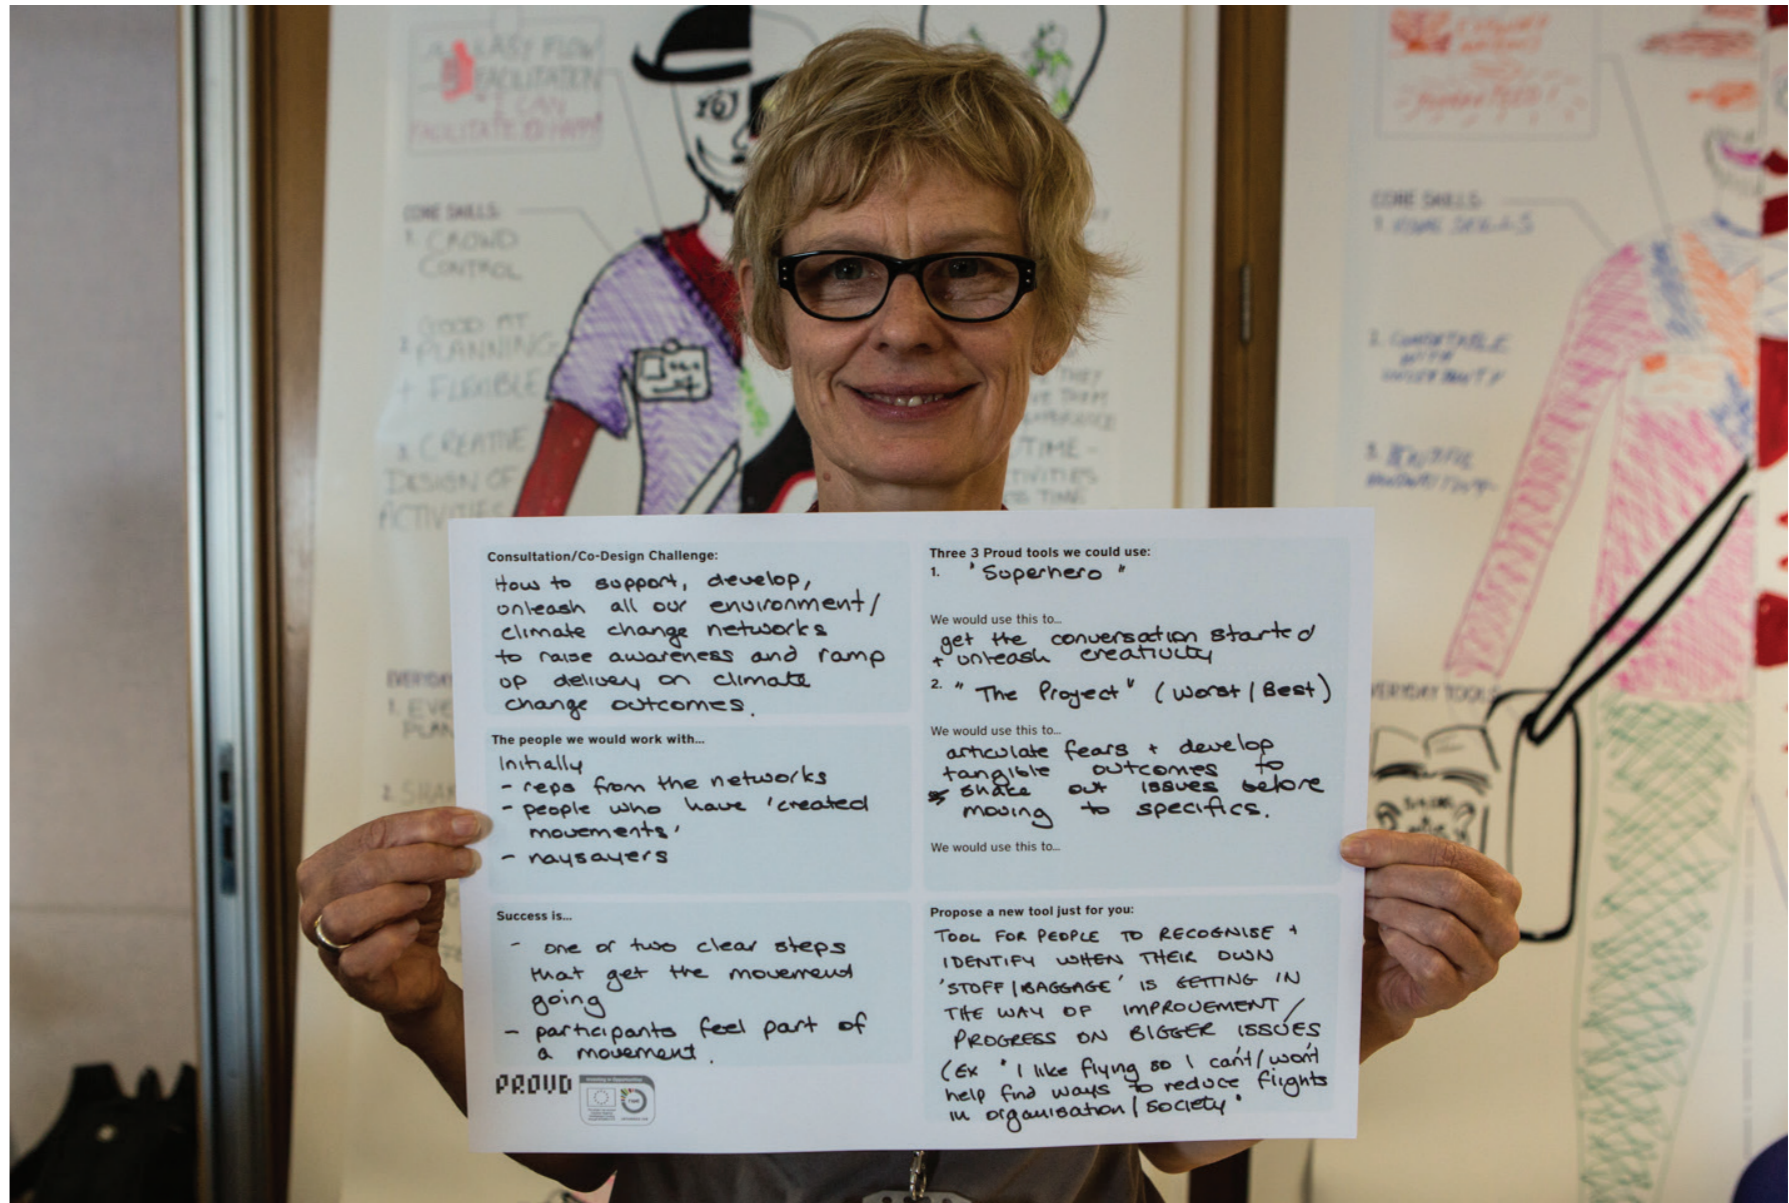 EASY FLOW
FACILITATION
"I CAN
CORE SKILLS:
1. CROWD
CONTROL
GOOD AT
2. PLANNING
+ FLEXIBLE
3. CREATIVE
DESIGN OF
ACTIVITIES
1. EVE
PLAN
2. SHA
THEY
TIME -
TIME
CORE SKILLS:
2. COMFORTABLE
WITH
EVERYDAY TOOLS
Consultation/Co-Design Challenge:
How to support, develop,
unleash all our environment/
climate change networks
to raise awareness and ramp
up delivery on climate
change outcomes.
The people we would work with...
Initially
- reps from the networks
- people who have 'created
movements'
- naysayers
Success is...
- one or two clear steps
that get the movement
going
- participants feel part of
a movement.
PROUD
Three 3 Proud tools we could use:
1. "Superhero"
We would use this to...
get the conversation started
+ unleash creativity
2. "The Project" (Worst/Best)
We would use this to...
articulate fears + develop
tangible outcomes to
shake out issues before
moving to specifics.
We would use this to...
Propose a new tool just for you:
TOOL FOR PEOPLE TO RECOGNISE +
IDENTIFY WHEN THEIR OWN
'STUFF/BAGGAGE' IS GETTING IN
THE WAY OF IMPROVEMENT/
PROGRESS ON BIGGER ISSUES
(Ex "I like flying so I can't/won't
help find ways to reduce flights
in organisation/society"